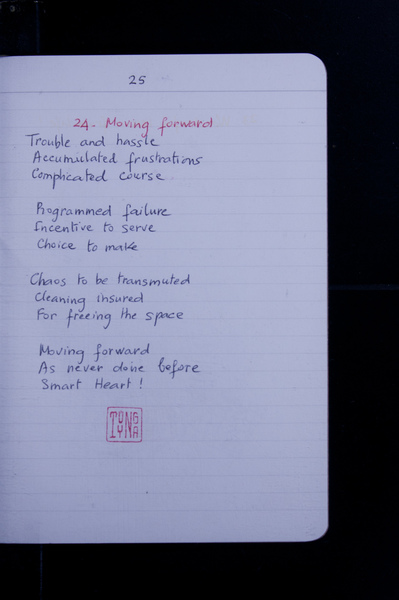 25
24- Moving forward
Trouble and hassle
Accumulated frustrations
Complicated course
Programmed failure
Incentive to serve
Choice to make
Chaos to be transmuted
Cleaning insured
For freeing the space
Moving forward
As never done before
Smart Heart !